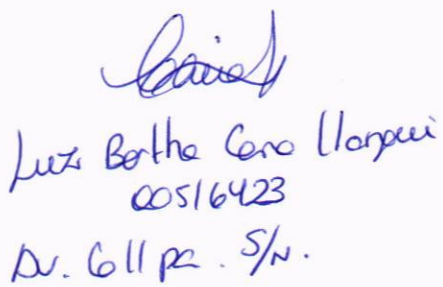 Luz Bertha Cano Llanqui
00516423
Av. Collpa. S/N.